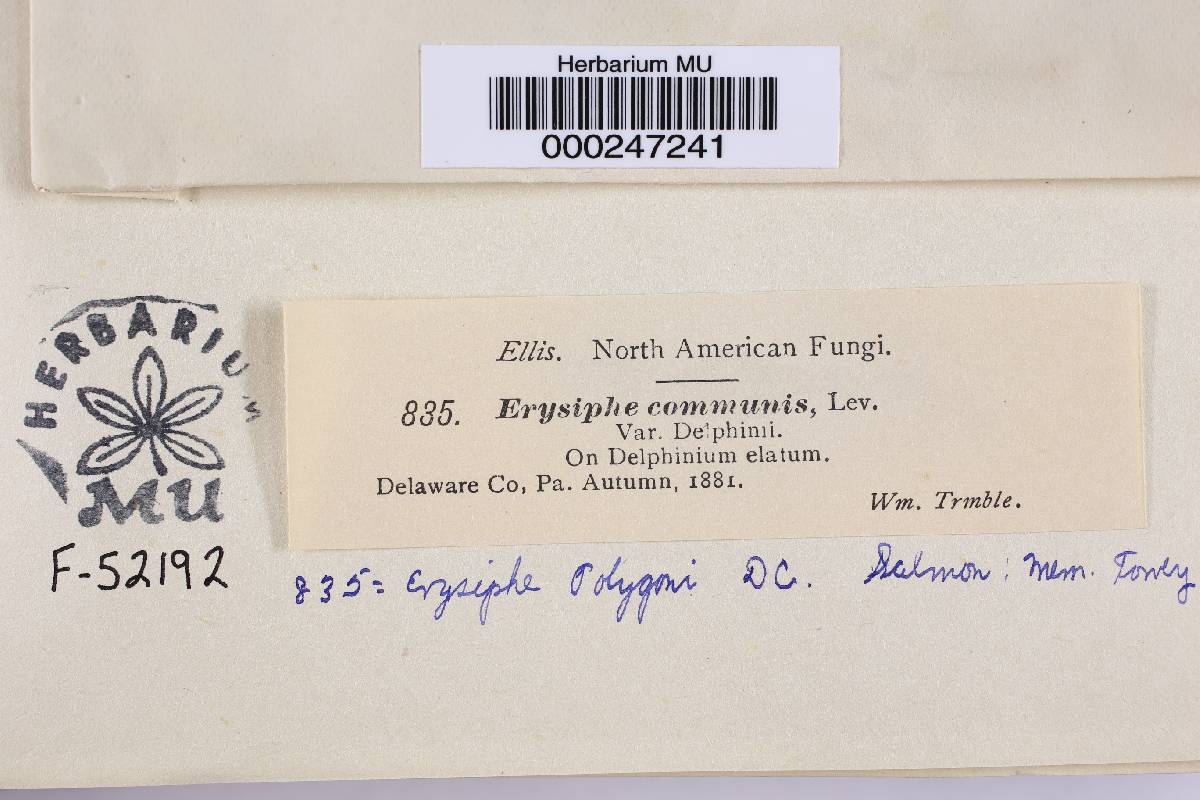 Herbarium MU
000247241
HERBARIUM
MU
F-52192
Ellis. North American Fungi.
835. Erysiphe communis, Lev.
Var. Delphinii.
On Delphinium elatum.
Delaware Co, Pa. Autumn, 1881.
Wm. Trmble.
835 = Erysiphe Polygoni DC. Salmon: Mem. Torrey